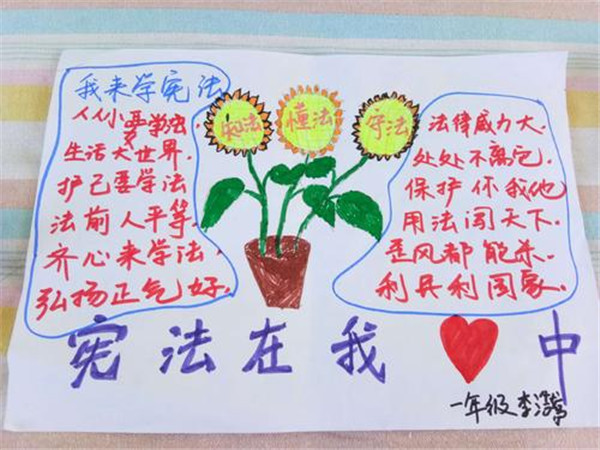 我来学宪法
人人小要学法
生活大世界.
护己要学法
法前人平等.
齐心来学法.
弘扬正气好.
知法
懂法
守法
法律威力大.
处处不离它.
保护你我他
用法闯天下.
歪风都能杀.
利民利国家.
宪法在我中
一年级 李